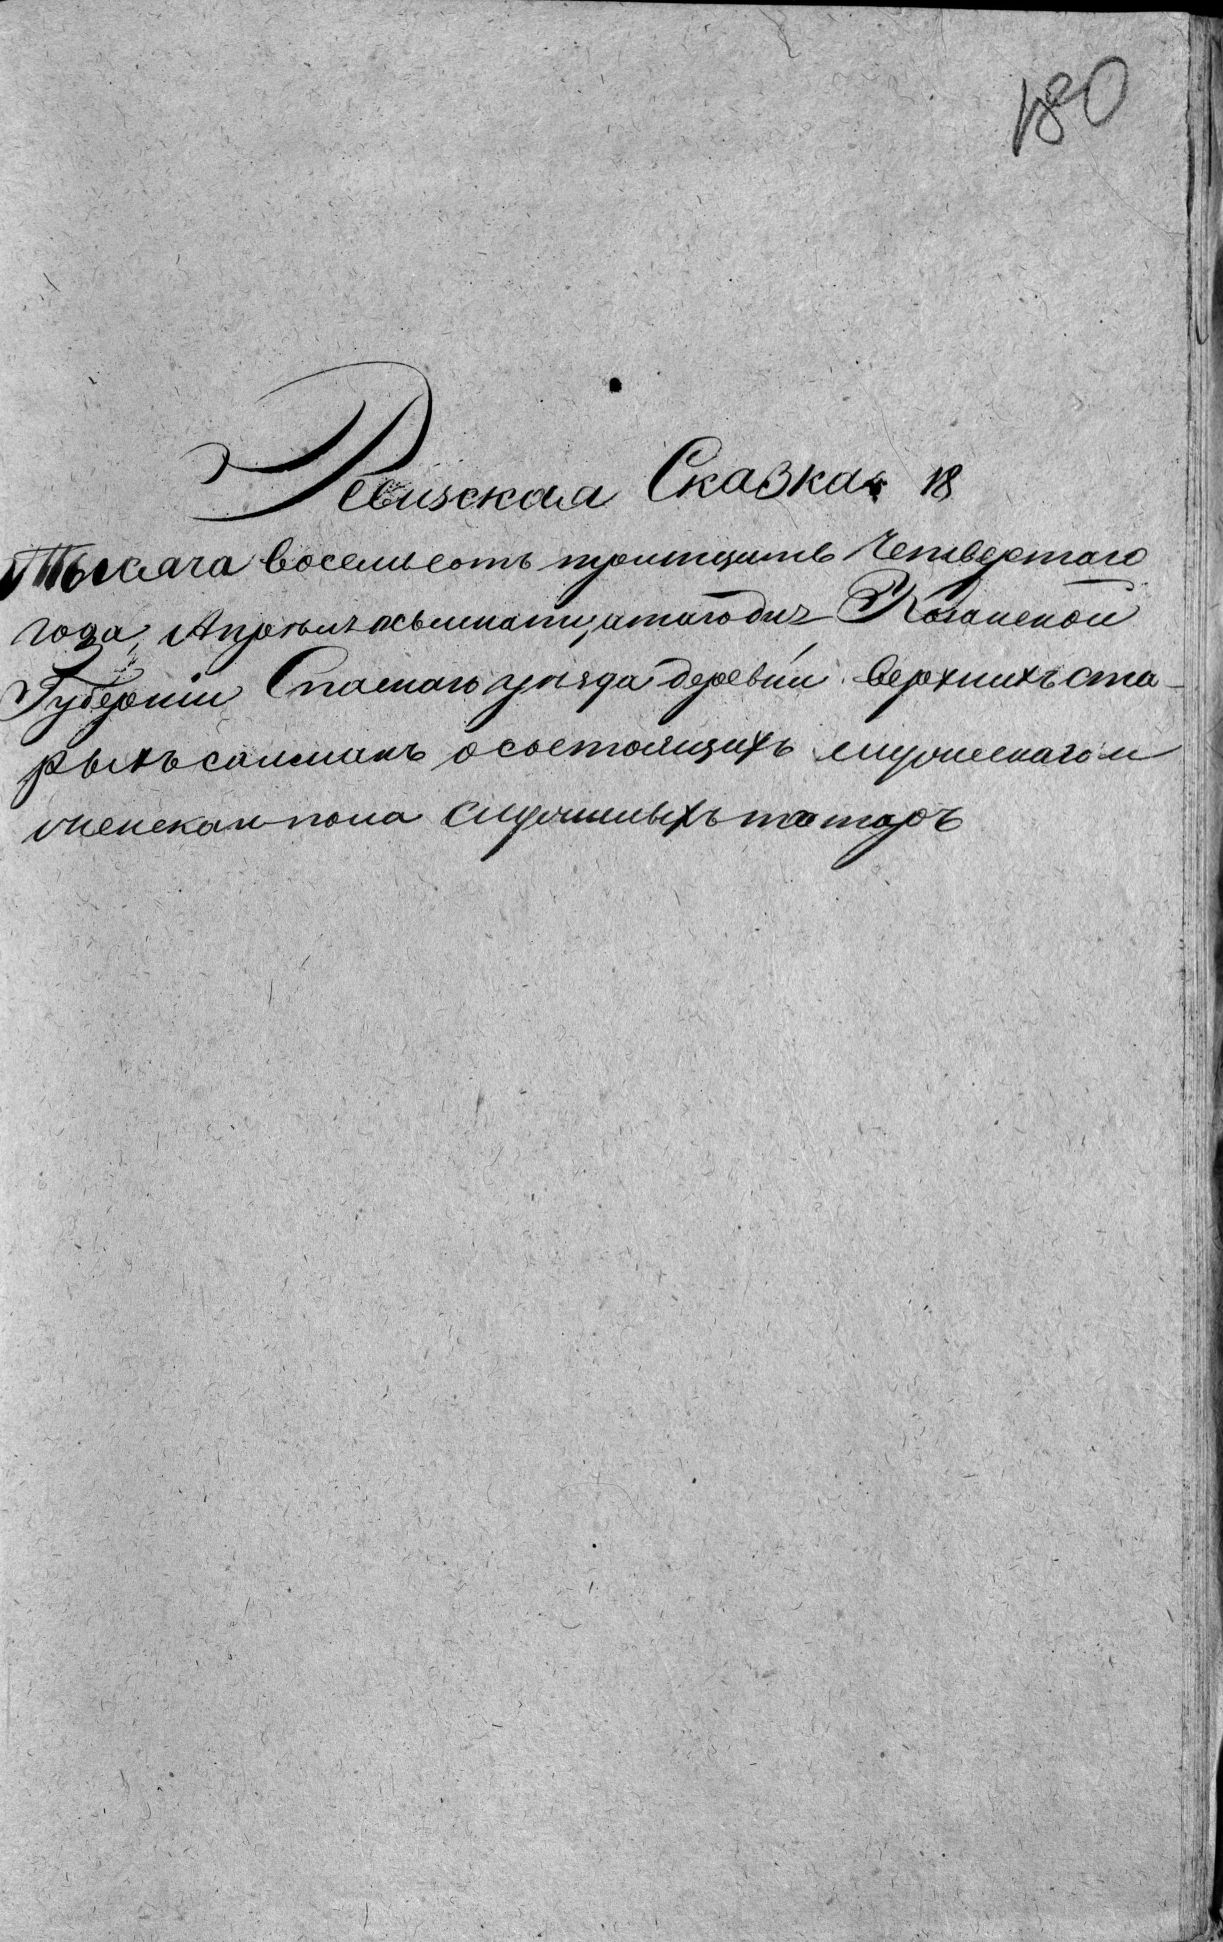 180
Ревизская Сказка 18
Тысяча восемьсотъ тритцать Четвертаго
года, Апреля осьмнатцатагодня Казанской
Губерніи Спаскаго уезда деревни верхнихъ ста-
рыхъ салманъ осостоящихъ мужескагои
женскаго пола служилыхъ татаръ